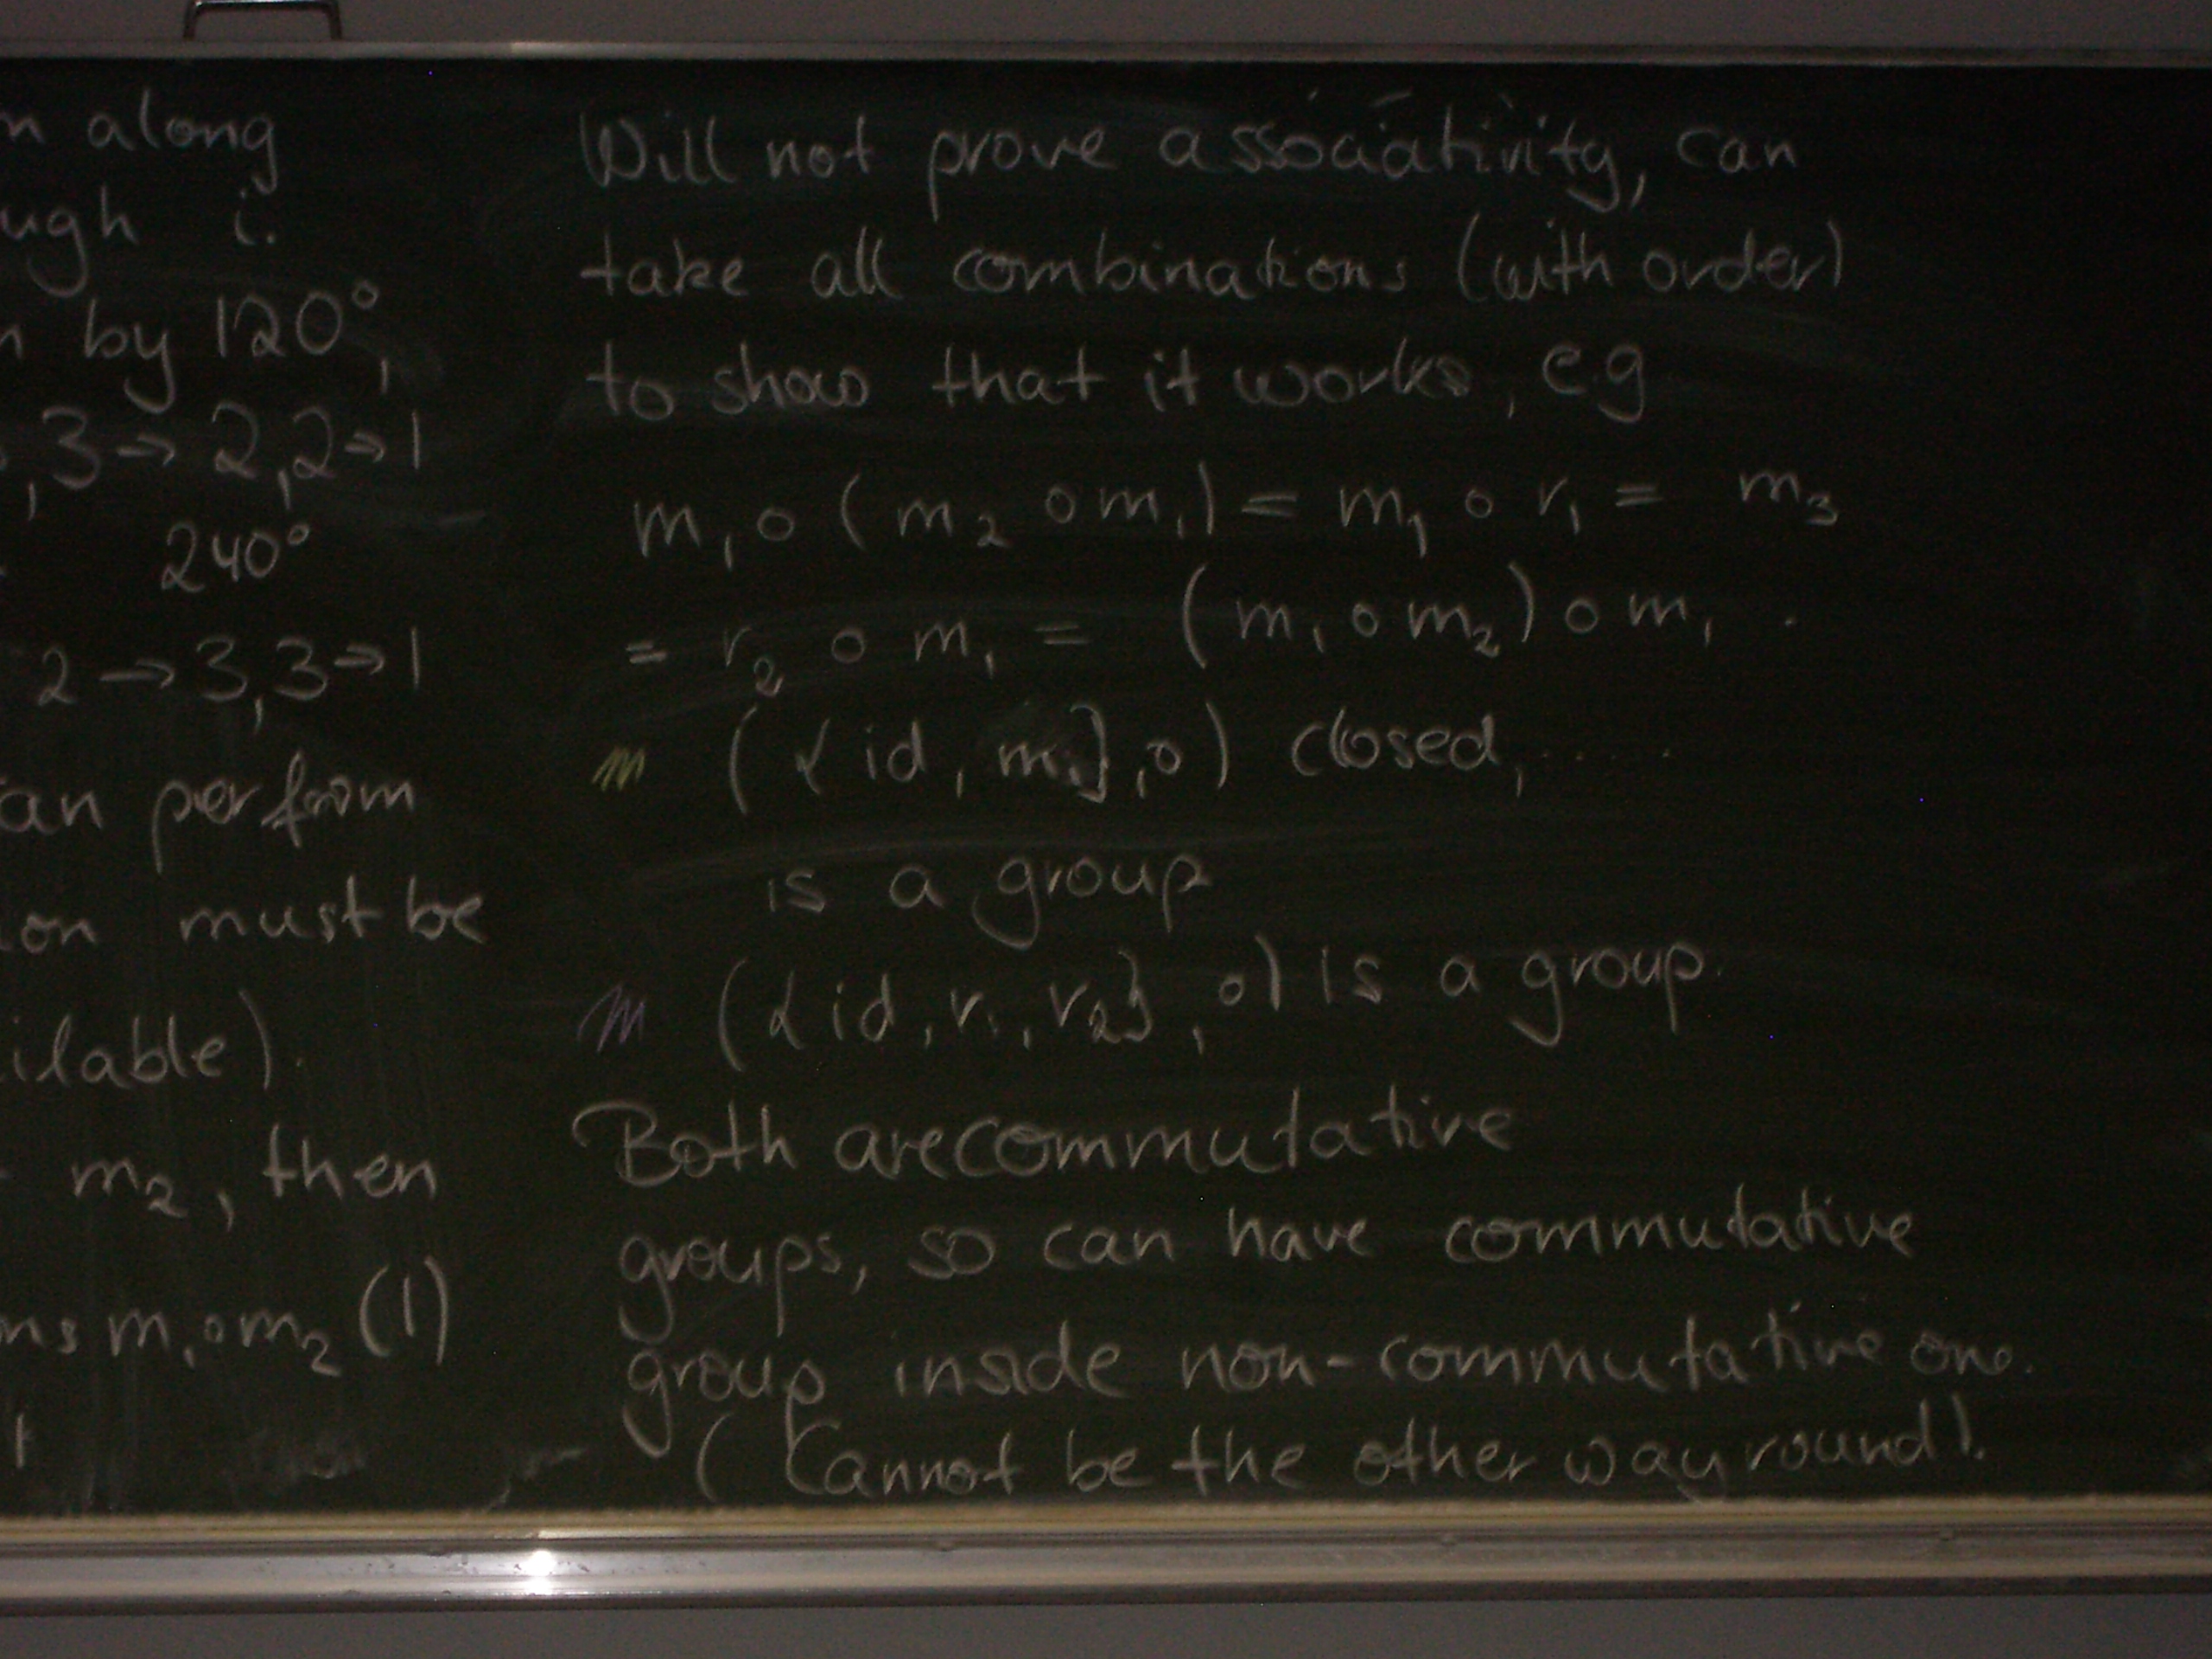 n along
ugh i.
n by 120°,
,3→2,2→1
240°
2→3,3→1
an perform
on must be
ilable)
m₂, then
ns m₁∘m₂(1)
Will not prove associativity, can
take all combinations (with order)
to show that it works, e.g
m₁∘(m₂∘m₁) = m₁∘r₁ = m₃
= r₂∘m₁ = (m₁∘m₂)∘m₁.
({id, m₁},∘) closed, .....
is a group
({id, r₁, r₂},∘) is a group.
Both are commutative
groups, so can have commutative
group inside non-commutative one.
(Cannot be the other way round).